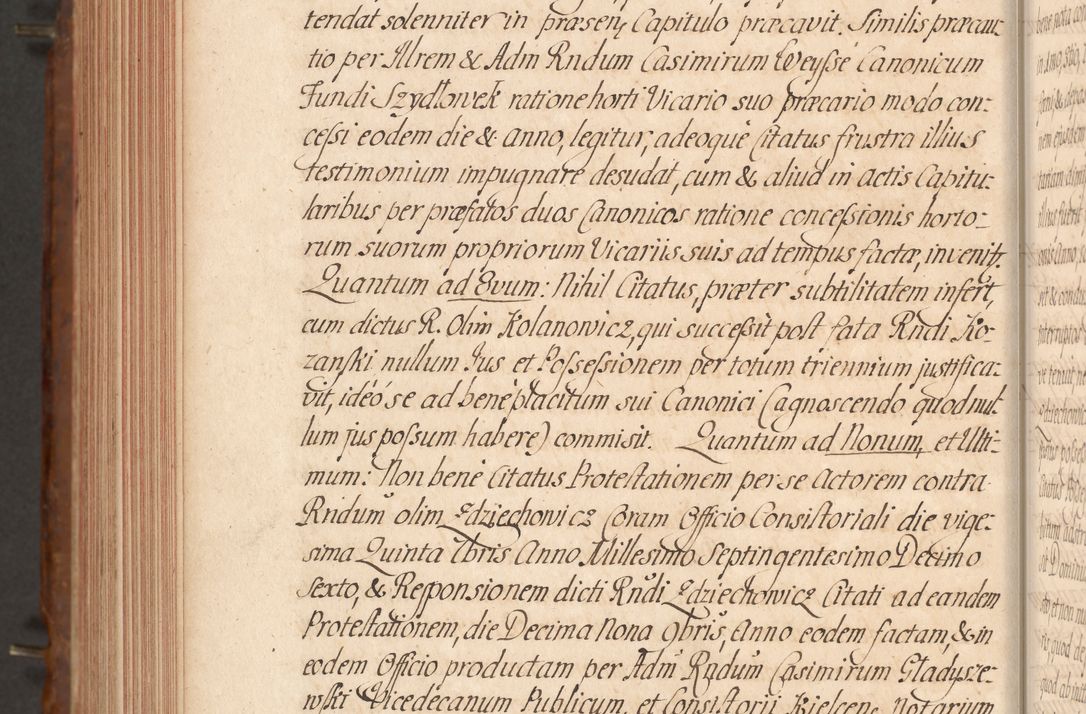 tendat solenniter in præsenti Capitulo præcavit. Similis præcau:
tio per Illrem & Adm Rndum Casimirum Weysse Canonicum
Fundi Szydłowek ratione horti Vicario suo præcario modo con:
cessi eodem die & anno, legitur, adeoque Citatus frustra illius
testimonium impugnare desudat, cum & aliud in actis Capitu:
laribus per præfatos duos Canonicos ratione concessionis horto:
rum suorum propriorum Vicariis suis ad tempus factæ, invenit.
Quantum ad 8vum: Nihil Citatus, præter subtilitatem infert,
cum dictus R. Olim Kolanowicz, qui successit post fata Rndi Ko:
zański nullum Jus et Possessionem per totum triennium justifica:
vit, ideó se ad bene placitum sui Canonici (agnoscendo quod nul:
lum jus possum habere) commisit. Quantum ad Nonum, et Ulti:
mum: Non bene Citatus Protestationem per se Actorem contra
Rndum olim Zdziechowicz Coram Officio Consistoriali die vige:
sima Quinta Xbris Anno Millesimo Septingentesimo Decimo
Sexto, & Responsionem dicti Rndi Zdziechowicz Citati ad eandem
Protestationem, die Decima Nona 9bris, Anno eodem factam, & in
eodem Officio productam per Adm Rndum Casimirum Gładysze:
wski Vicedecanum Publicum, et Consistorii Kielcens Notarium